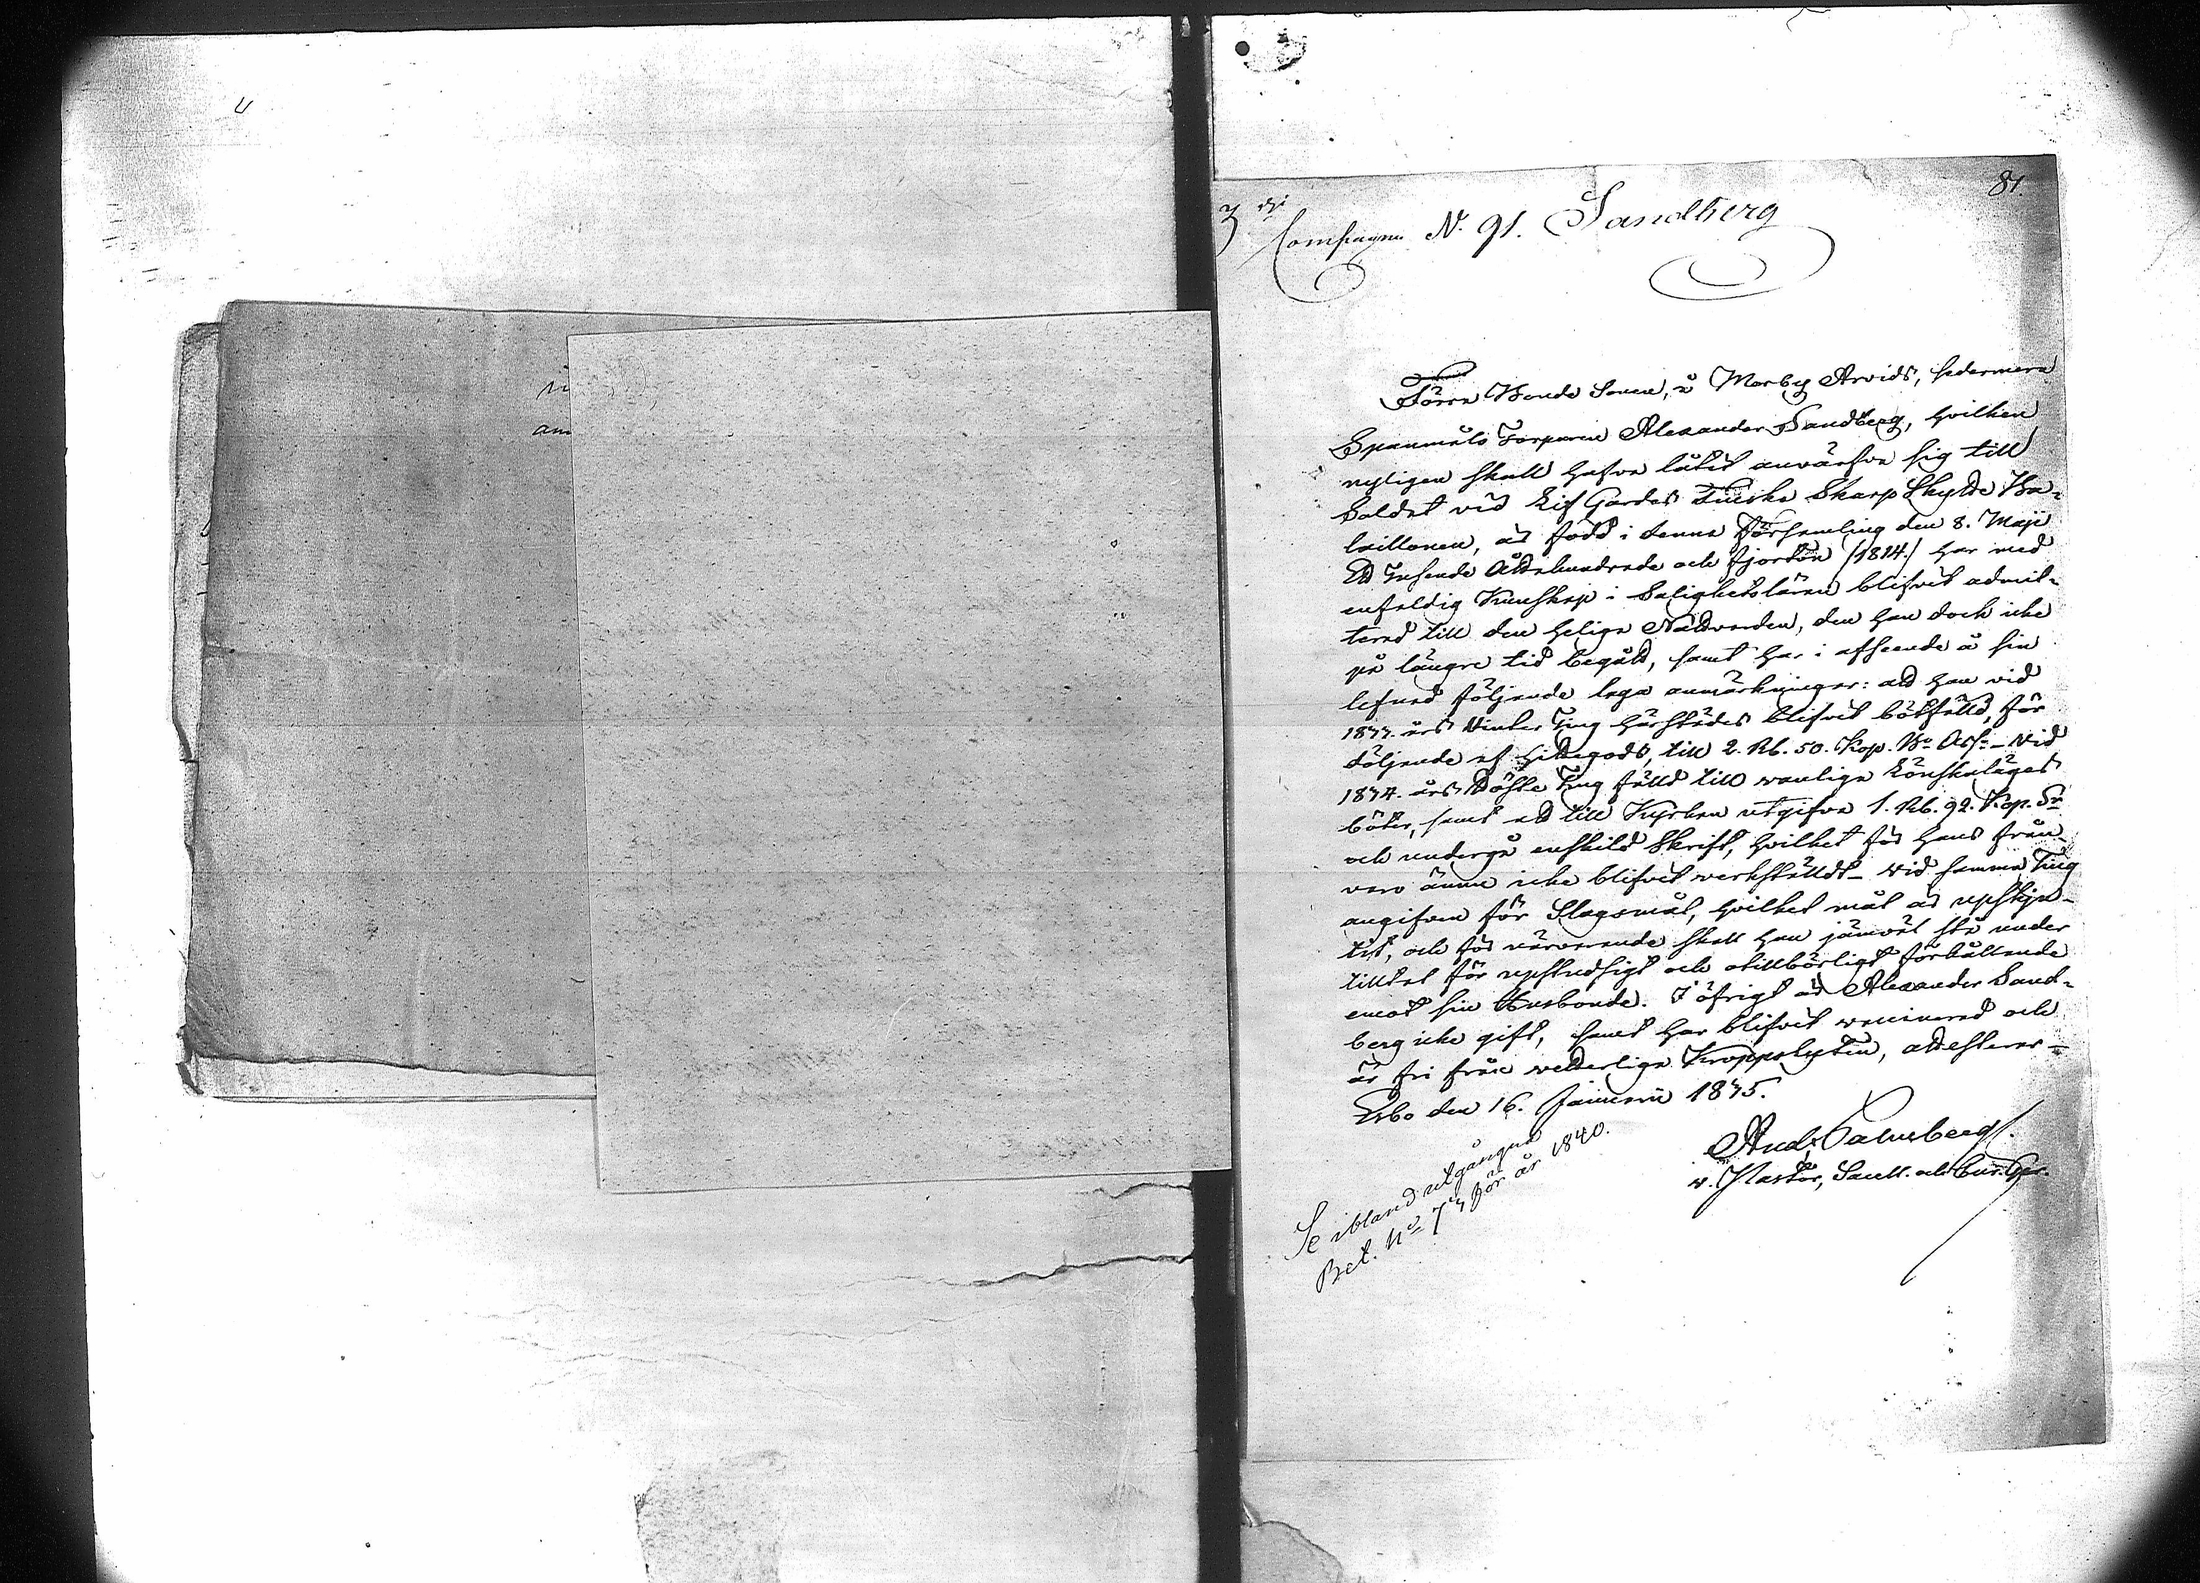 81.
3dje Compagnie N. 91. Sandberg
Förra Bonde Sonen, å Morby Arvids, sedermera
Spanmåls Torparen Alexander Sandberg, hvilken
nyligen skall hafva låtit anvärfva sig till
Soldat vid Lif Gardes Finska Skarp Skytte Ba-
taillonen, är född i denna Församling den 8. Maji
Ett Tusende Åttahundrade och fjorton /1814./ har med
enfaldig Kunskap i Salighetsläran blifvit admit-
terad till den heliga Nattvarden, den han dock icke
på längre tid begått, samt har i afseende å sin
lefnad följande laga anmärkningar: att han vid
1833. års Vinter Ting härstädes blifvit bötfälld, för
döljande af hittegods, till 2. Rb. 50. Kop. Bo Assr - Vid
1834. års Höste Ting fälld till vanliga Lönskaläges
böter, samt att till Kyrkan utgifva 1. Rb. 92. Kop. Sr
och undergå enskild Skrift, hvilket för hans från-
varo ännu icke blifvit verkställdt - vid samma Ting
angifven för Slagsmål, hvilket mål är upskju-
tit, och för närvarande skall han jämväl stå under
tilltal för upstudsigt och otillbörligt förhållande
emot sin Husbonde. I öfrigt är Alexander Sand-
berg icke gift, samt har blifvit vaccinerad och
är fri från vederliga Kroppslyten, attesterar -
Esbo den 16. Januarii 1835.
And. Palmberg
v. Pastor, Sacell. och Cur. Ger.
Se ibland utgångna
Bet. No 73 för år 1840.